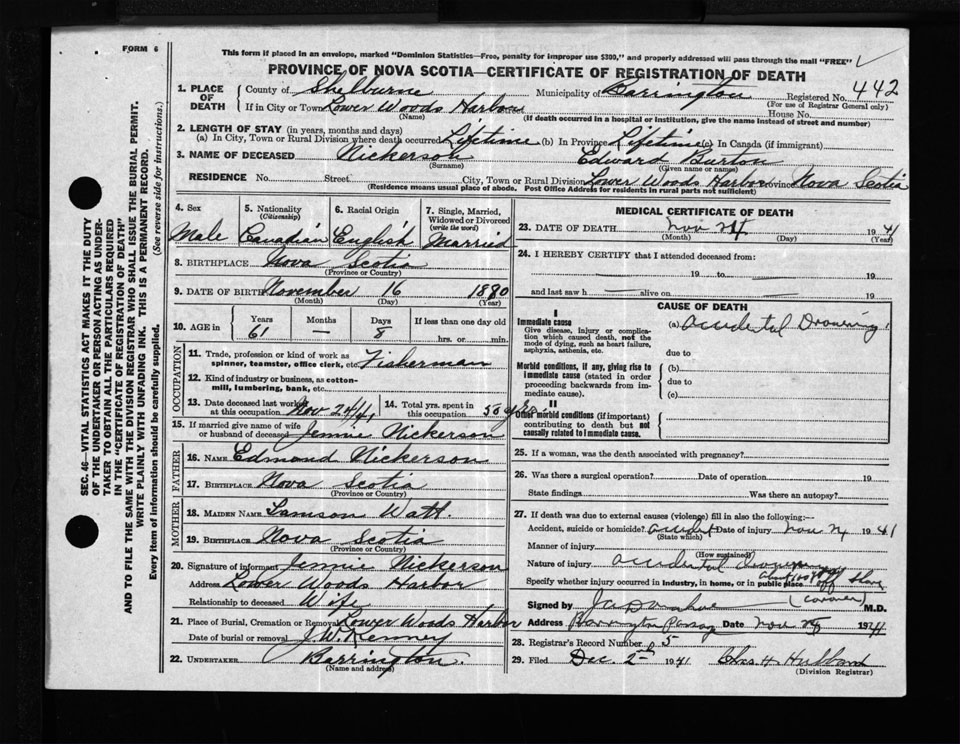 FORM 6
This form if placed in an envelope, marked "Dominion Statistics—Free, penalty for improper use $300," and properly addressed will pass through the mail "FREE"
PROVINCE OF NOVA SCOTIA—CERTIFICATE OF REGISTRATION OF DEATH
442
1. PLACE OF DEATH
County of Shelburne Municipality of Barrington Registered No.
(For use of Registrar General only)
If in City or Town Lower Woods Harbor House No.
(Name) (If death occurred in a hospital or Institution, give the name instead of street and number)
2. LENGTH OF STAY (in years, months and days)
(a) In City, Town or Rural Division where death occurred Lifetime (b) In Province Lifetime (c) In Canada (if immigrant)
3. NAME OF DECEASED Nickerson Edward Burton
(Surname) (Given name or names)
RESIDENCE No. Street City, Town or Rural Division Lower Woods Harbor Province Nova Scotia
(Residence means usual place of abode. Post Office Address for residents in rural parts not sufficient)
4. Sex Male
5. Nationality (Citizenship) Canadian
6. Racial Origin English
7. Single, Married, Widowed or Divorced (write the word) Married
8. BIRTHPLACE Nova Scotia
(Province or Country)
9. DATE OF BIRTH November 16 1880
(Month) (Day) (Year)
10. AGE in Years Months Days If less than one day old
61 — 8 hrs. or min.
OCCUPATION
11. Trade, profession or kind of work as spinner, teamster, office clerk, etc. Fisherman
12. Kind of industry or business, as cotton-mill, lumbering, bank, etc.
13. Date deceased last worked at this occupation Nov 24/41
14. Total yrs. spent in this occupation 50 yrs
15. If married give name of wife or husband of deceased Jennie Nickerson
FATHER
16. NAME Edmond Nickerson
17. BIRTHPLACE Nova Scotia
(Province or Country)
MOTHER
18. MAIDEN NAME Watt.
19. BIRTHPLACE Nova Scotia
(Province or Country)
20. Signature of informant Jennie Nickerson
Address Lower Woods Harbor
Relationship to deceased Wife
21. Place of Burial, Cremation or Removal Lower Woods Harbor
Date of burial or removal
J.W. Kenney
22. UNDERTAKER Barrington.
(Name and address)
MEDICAL CERTIFICATE OF DEATH
23. DATE OF DEATH Nov 24 1941
(Month) (Day) (Year)
24. I HEREBY CERTIFY that I attended deceased from:
19 to 19
and last saw h alive on 19
CAUSE OF DEATH
I
Immediate cause
Give disease, injury or complication which caused death, not the mode of dying, such as heart failure, asphyxia, asthenia, etc.
(a) accidental Drowning
due to
Morbid conditions, if any, giving rise to immediate cause (stated in order proceeding backwards from immediate cause).
(b)
due to
(c)
II
Other morbid conditions (if important) contributing to death but not causally related to immediate cause.
25. If a woman, was the death associated with pregnancy?
26. Was there a surgical operation? Date of operation 19
State findings Was there an autopsy?
27. If death was due to external causes (violence) fill in also the following:—
Accident, suicide or homicide? accident Date of injury Nov 24 1941
(State which)
Manner of injury
(How sustained)
Nature of injury accidental drowning
Specify whether injury occurred in industry, in home, or in public place off shore
Signed by (Coroner) M.D.
Address Barrington Passage Date Nov 1941
28. Registrar's Record Number 5
29. Filed Dec 2nd 1941 Chas. H.
(Division Registrar)
SEC. 46—VITAL STATISTICS ACT MAKES IT THE DUTY
OF THE UNDERTAKER OR PERSON ACTING AS UNDER-
TAKER TO OBTAIN ALL THE PARTICULARS REQUIRED
IN THE "CERTIFICATE OF REGISTRATION OF DEATH"
AND TO FILE THE SAME WITH THE DIVISION REGISTRAR WHO SHALL ISSUE THE BURIAL PERMIT.
WRITE PLAINLY WITH UNFADING INK. THIS IS A PERMANENT RECORD.
Every item of information should be carefully supplied. (See reverse side for instructions.)